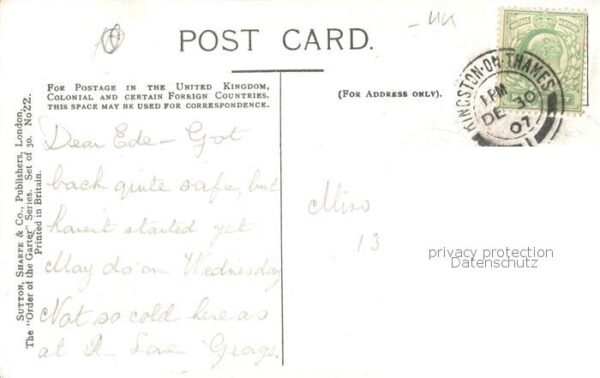 UK
POST CARD.
FOR POSTAGE IN THE UNITED KINGDOM,
COLONIAL AND CERTAIN FOREIGN COUNTRIES.
THIS SPACE MAY BE USED FOR CORRESPONDENCE.
(FOR ADDRESS ONLY).
KINGSTON-ON-THAMES
1 PM
DE 30
07
1
SUTTON, SHARPE & CO., Publishers, London.
The "Order of the Garter" Series. Set of 30. No22.
Printed in Britain.
Dear Ede - Got
back quite safe, but
haven't started yet.
May do on Wednesday
Not so cold here as
at R- Love George.
Miss
13
privacy protection
Datenschutz